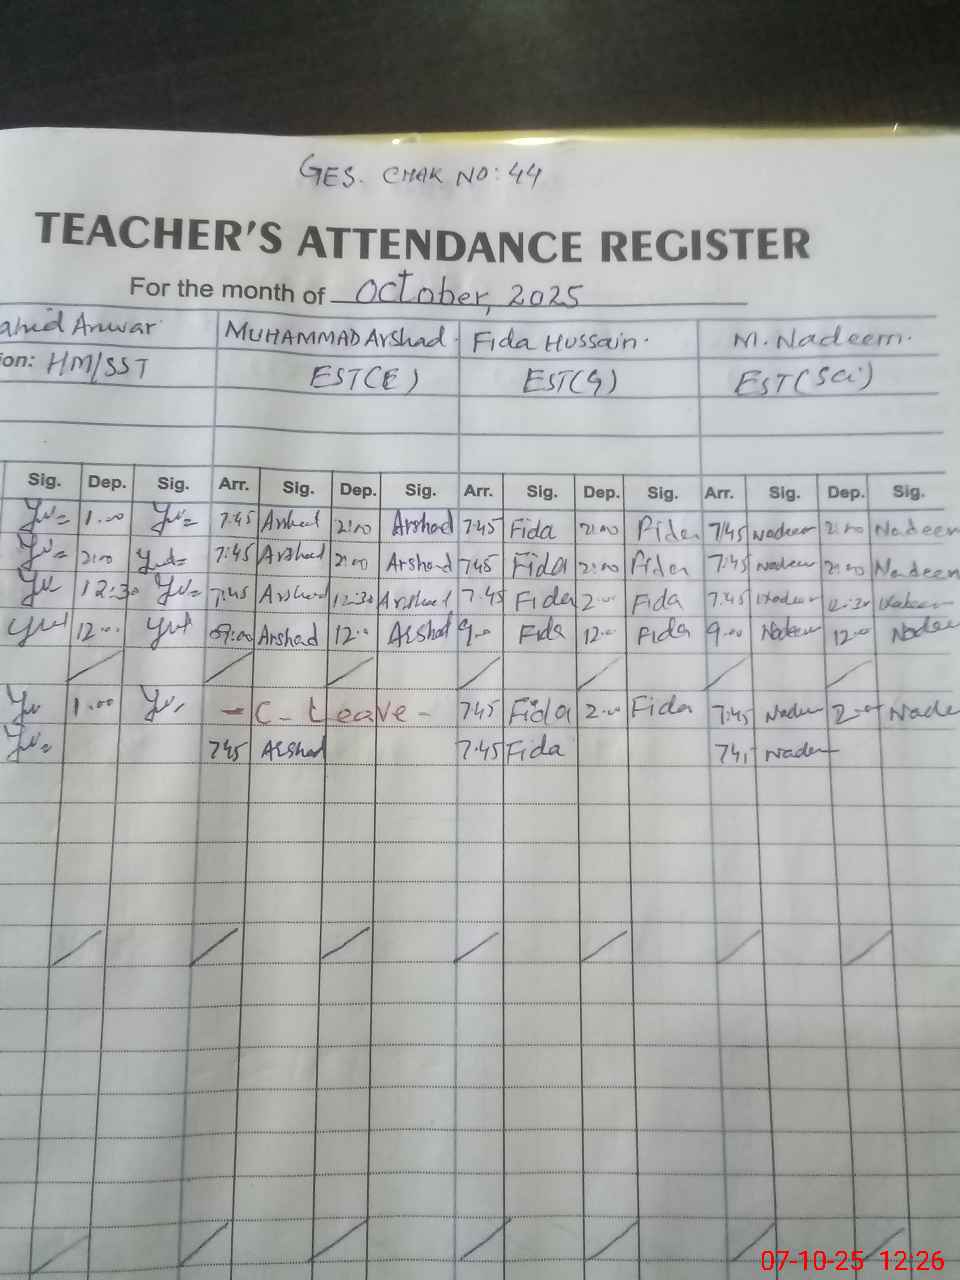 GES. CHAK NO: 44
TEACHER'S ATTENDANCE REGISTER
For the month of October, 2025
ahid Anwar MUHAMMAD Arshad. Fida Hussain. M. Nadeem.
ion: HM/SST EST(E) EST(G) EST(Sci)
Sig. Dep. Sig. Arr. Sig. Dep. Sig. Arr. Sig. Dep. Sig. Arr. Sig. Dep. Sig.
1.00 7:45 Arshad 2:00 Arshad 7:45 Fida 2:00 Fida 7:45 Nadeem 2:00 Nadeem
2:00 7:45 Arshad 2:00 Arshad 7:45 Fida 2:00 Fida 7:45 Nadeem 2:00 Nadeem
12:30 7:45 Arshad 12:30 Arshad 7:45 Fida 2:00 Fida 7:45 Nadeem 12:30 Nadeem
12:00 09:00 Arshad 12:00 Arshad 9:00 Fida 12:00 Fida 9:00 Nadeem 12:00 Nadee
1.00 - C - Leave - 7:45 Fida 2:00 Fida 7:45 Nadeem 2:00 Nade
7:45 Arshad 7:45 Fida 7:45 Nadeem
07-10-25 12:26